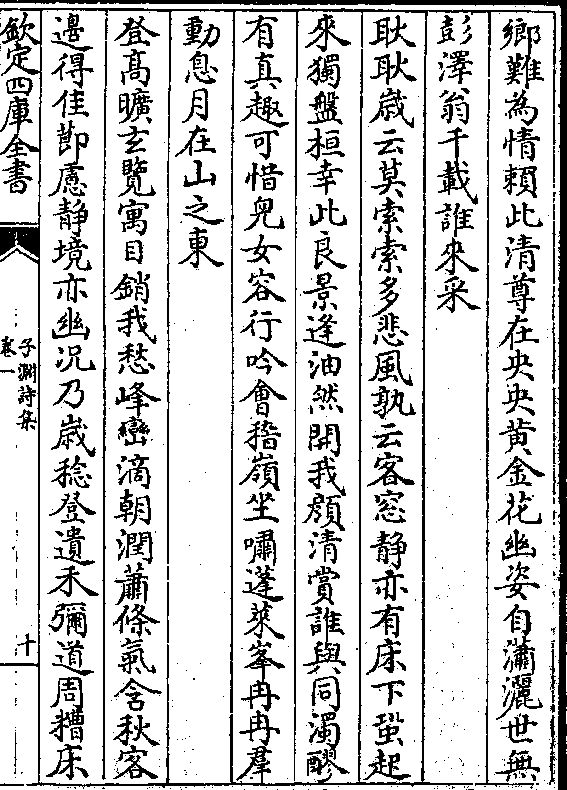 鄉難為情頼此清尊在央央黄金花幽姿自瀟灑世無
彭澤翁千載誰來采
耿耿歳云莫索索多悲風孰云客窓静亦有床下蛩起
來獨盤桓幸此良景逢油然開我顔清賞誰與同濁醪
有真趣可惜兒女容行吟會稽嶺坐嘯蓬萊峯冉冉羣
動息月在山之東
登髙曠玄覽寓目銷我愁峰巒滴朝潤蕭條氣含秋客
邉得佳節慮静境亦幽况乃歳稔登遺禾彌道周糟床
欽定四庫全書
子淵詩集
卷一
十